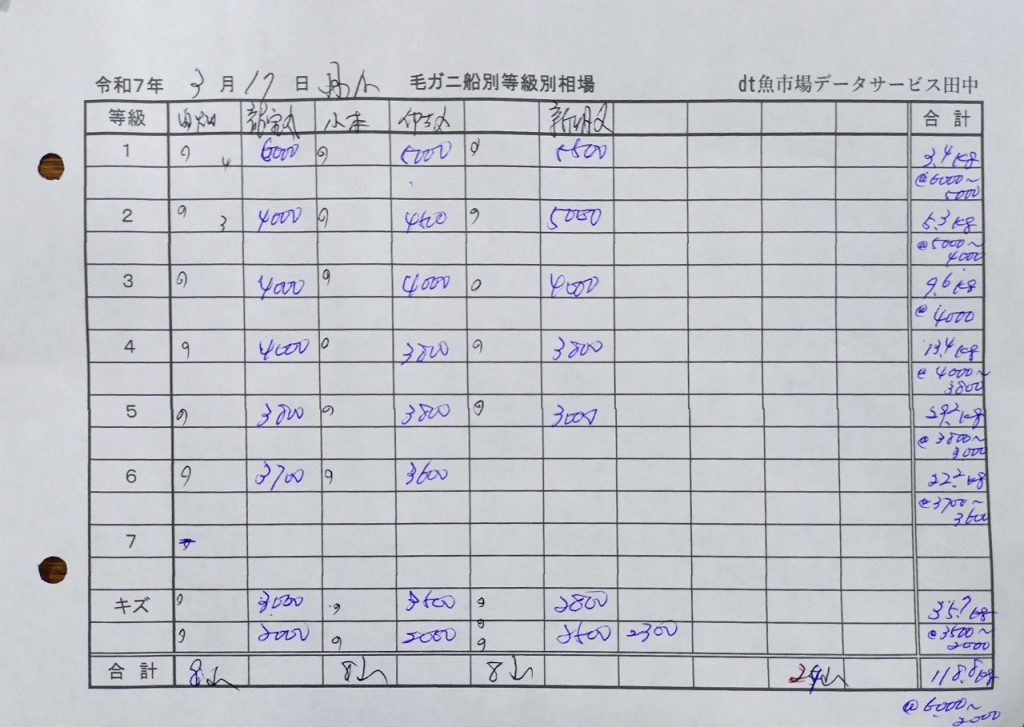 令和7年 3月17日 毛ガニ船別等級別相場 dt魚市場データサービス田中
等級 小本 合計
1 6000 5000 5500 3.4kg
@6000~5000
2 4000 4500 5000 5.3kg
@5000~4000
3 4000 4000 4000 9.6kg
@4000
4 4000 3800 3800 13.4kg
@4000~3800
5 3800 3800 3000 29.2kg
@3800~3000
6 3700 3600 22.2kg
@3700~3600
7
キズ 3000 3500 2800 35.7kg
2000 2000 2500 2300 @3500~2000
合計 8山 8山 8山 24山 118.8kg
@6000~2000